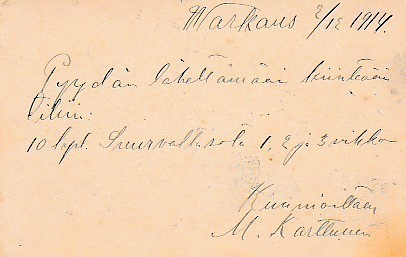 Warkaus 2/12 1914.
Pyydän lähettämään kiinteään
tiliin:
10 kpl. Suurvaltasota 1, 2 ja 3 vihko
Kunnioittaen
M. Karttunen